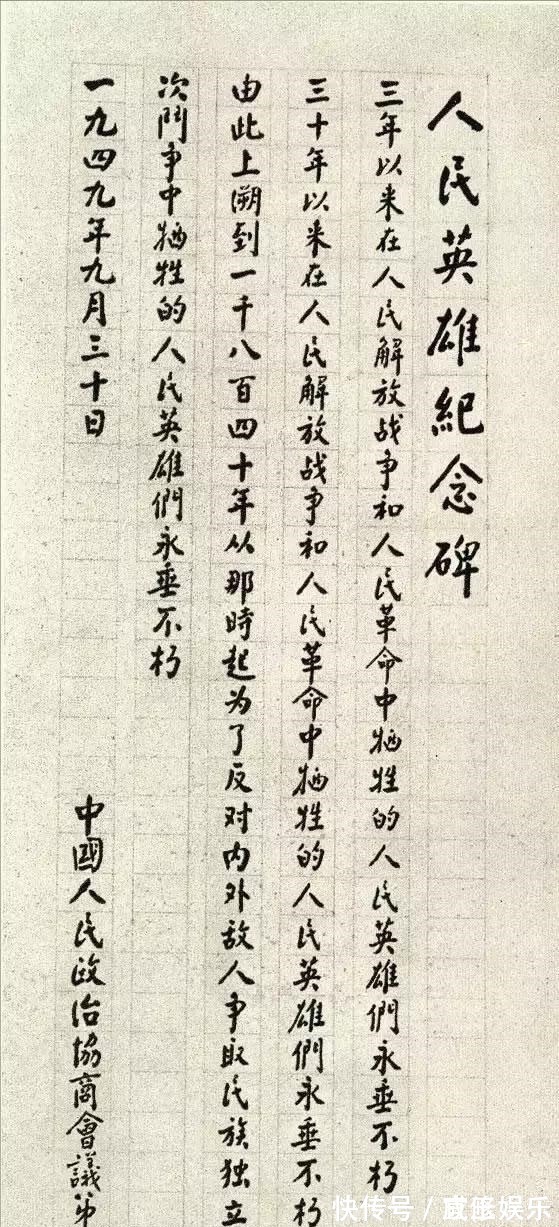 人民英雄紀念碑
三年以来在人民解放战争和人民革命中牺牲的人民英雄們永垂不朽
三十年以来在人民解放战争和人民革命中牺牲的人民英雄們永垂不朽
由此上溯到一千八百四十年从那時起为了反对内外敌人争取民族独立
次鬥争中牺牲的人民英雄們永垂不朽
一九四九年九月三十日
中國人民政治協商會議第
快传号/葳盛娱乐